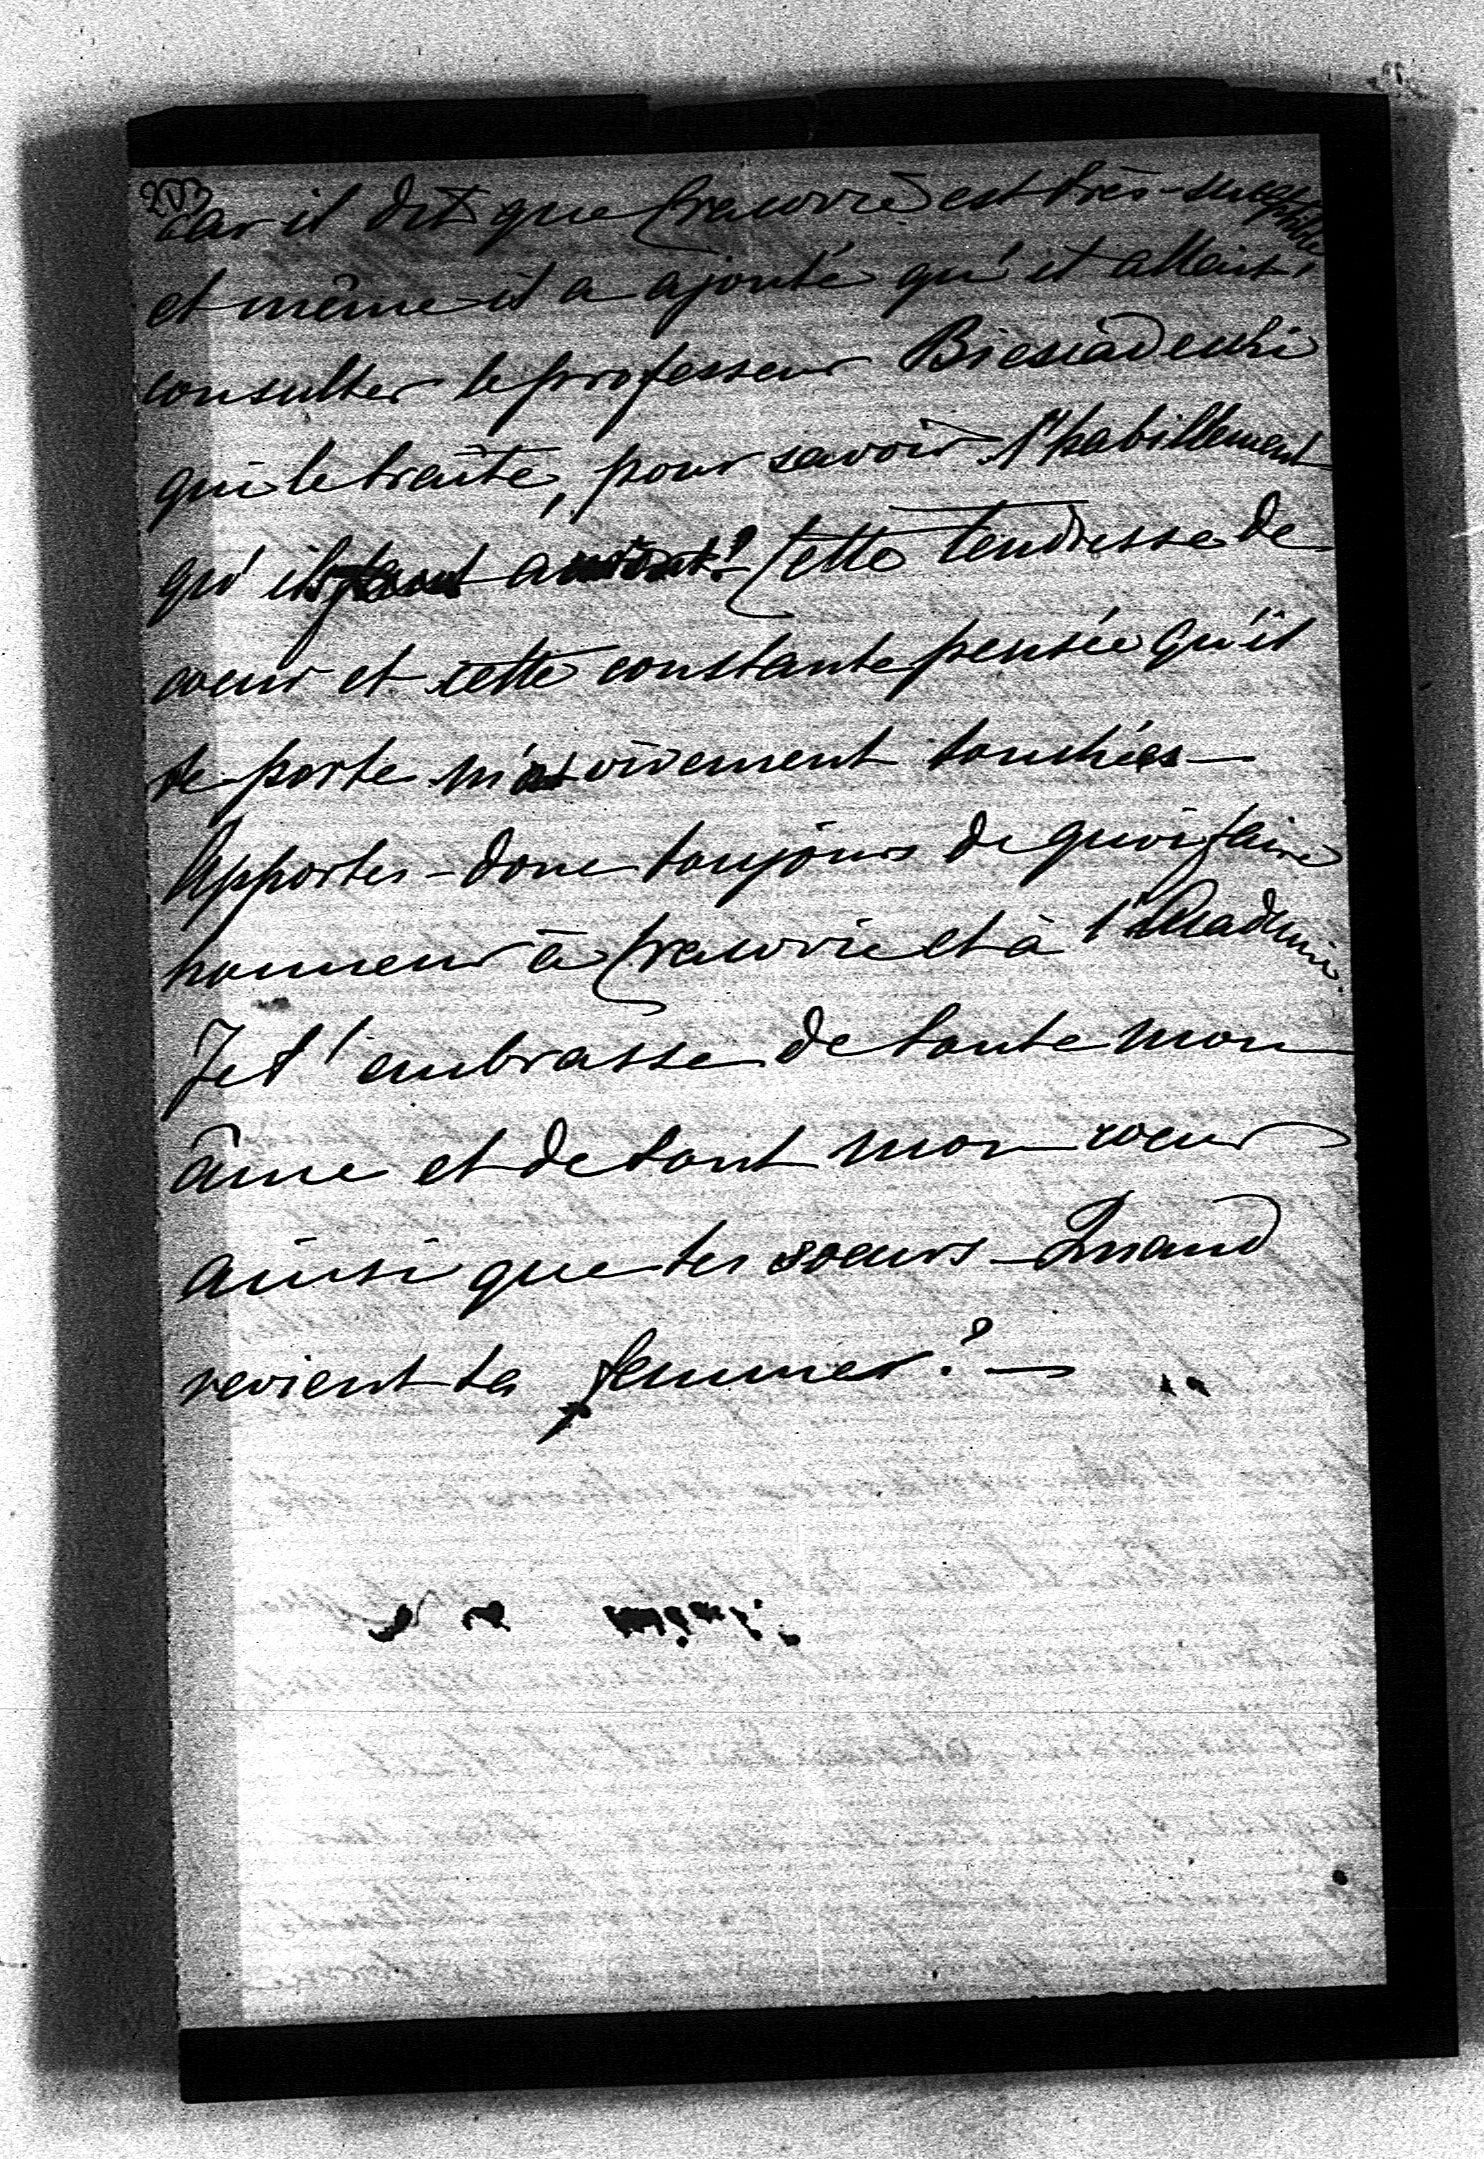 203
car il dit que Cracovie est très-susceptible
et même il a ajouté qu'il allait
consulter le professeur Biesiadecki
qui le traite, pour savoir l'habillement
qu'ils auront? Cette tendresse de
coeur et cette constante pensée qu'il
te porte m'ont vivement touchées —
Apportes-donc toujours de quoi faire
honneur à Cracovie et à l'Académie.
Je t'embrasse de toute mon
âme et de tout mon coeur
ainsi que tes soeurs — Quand
revient ta femme? —